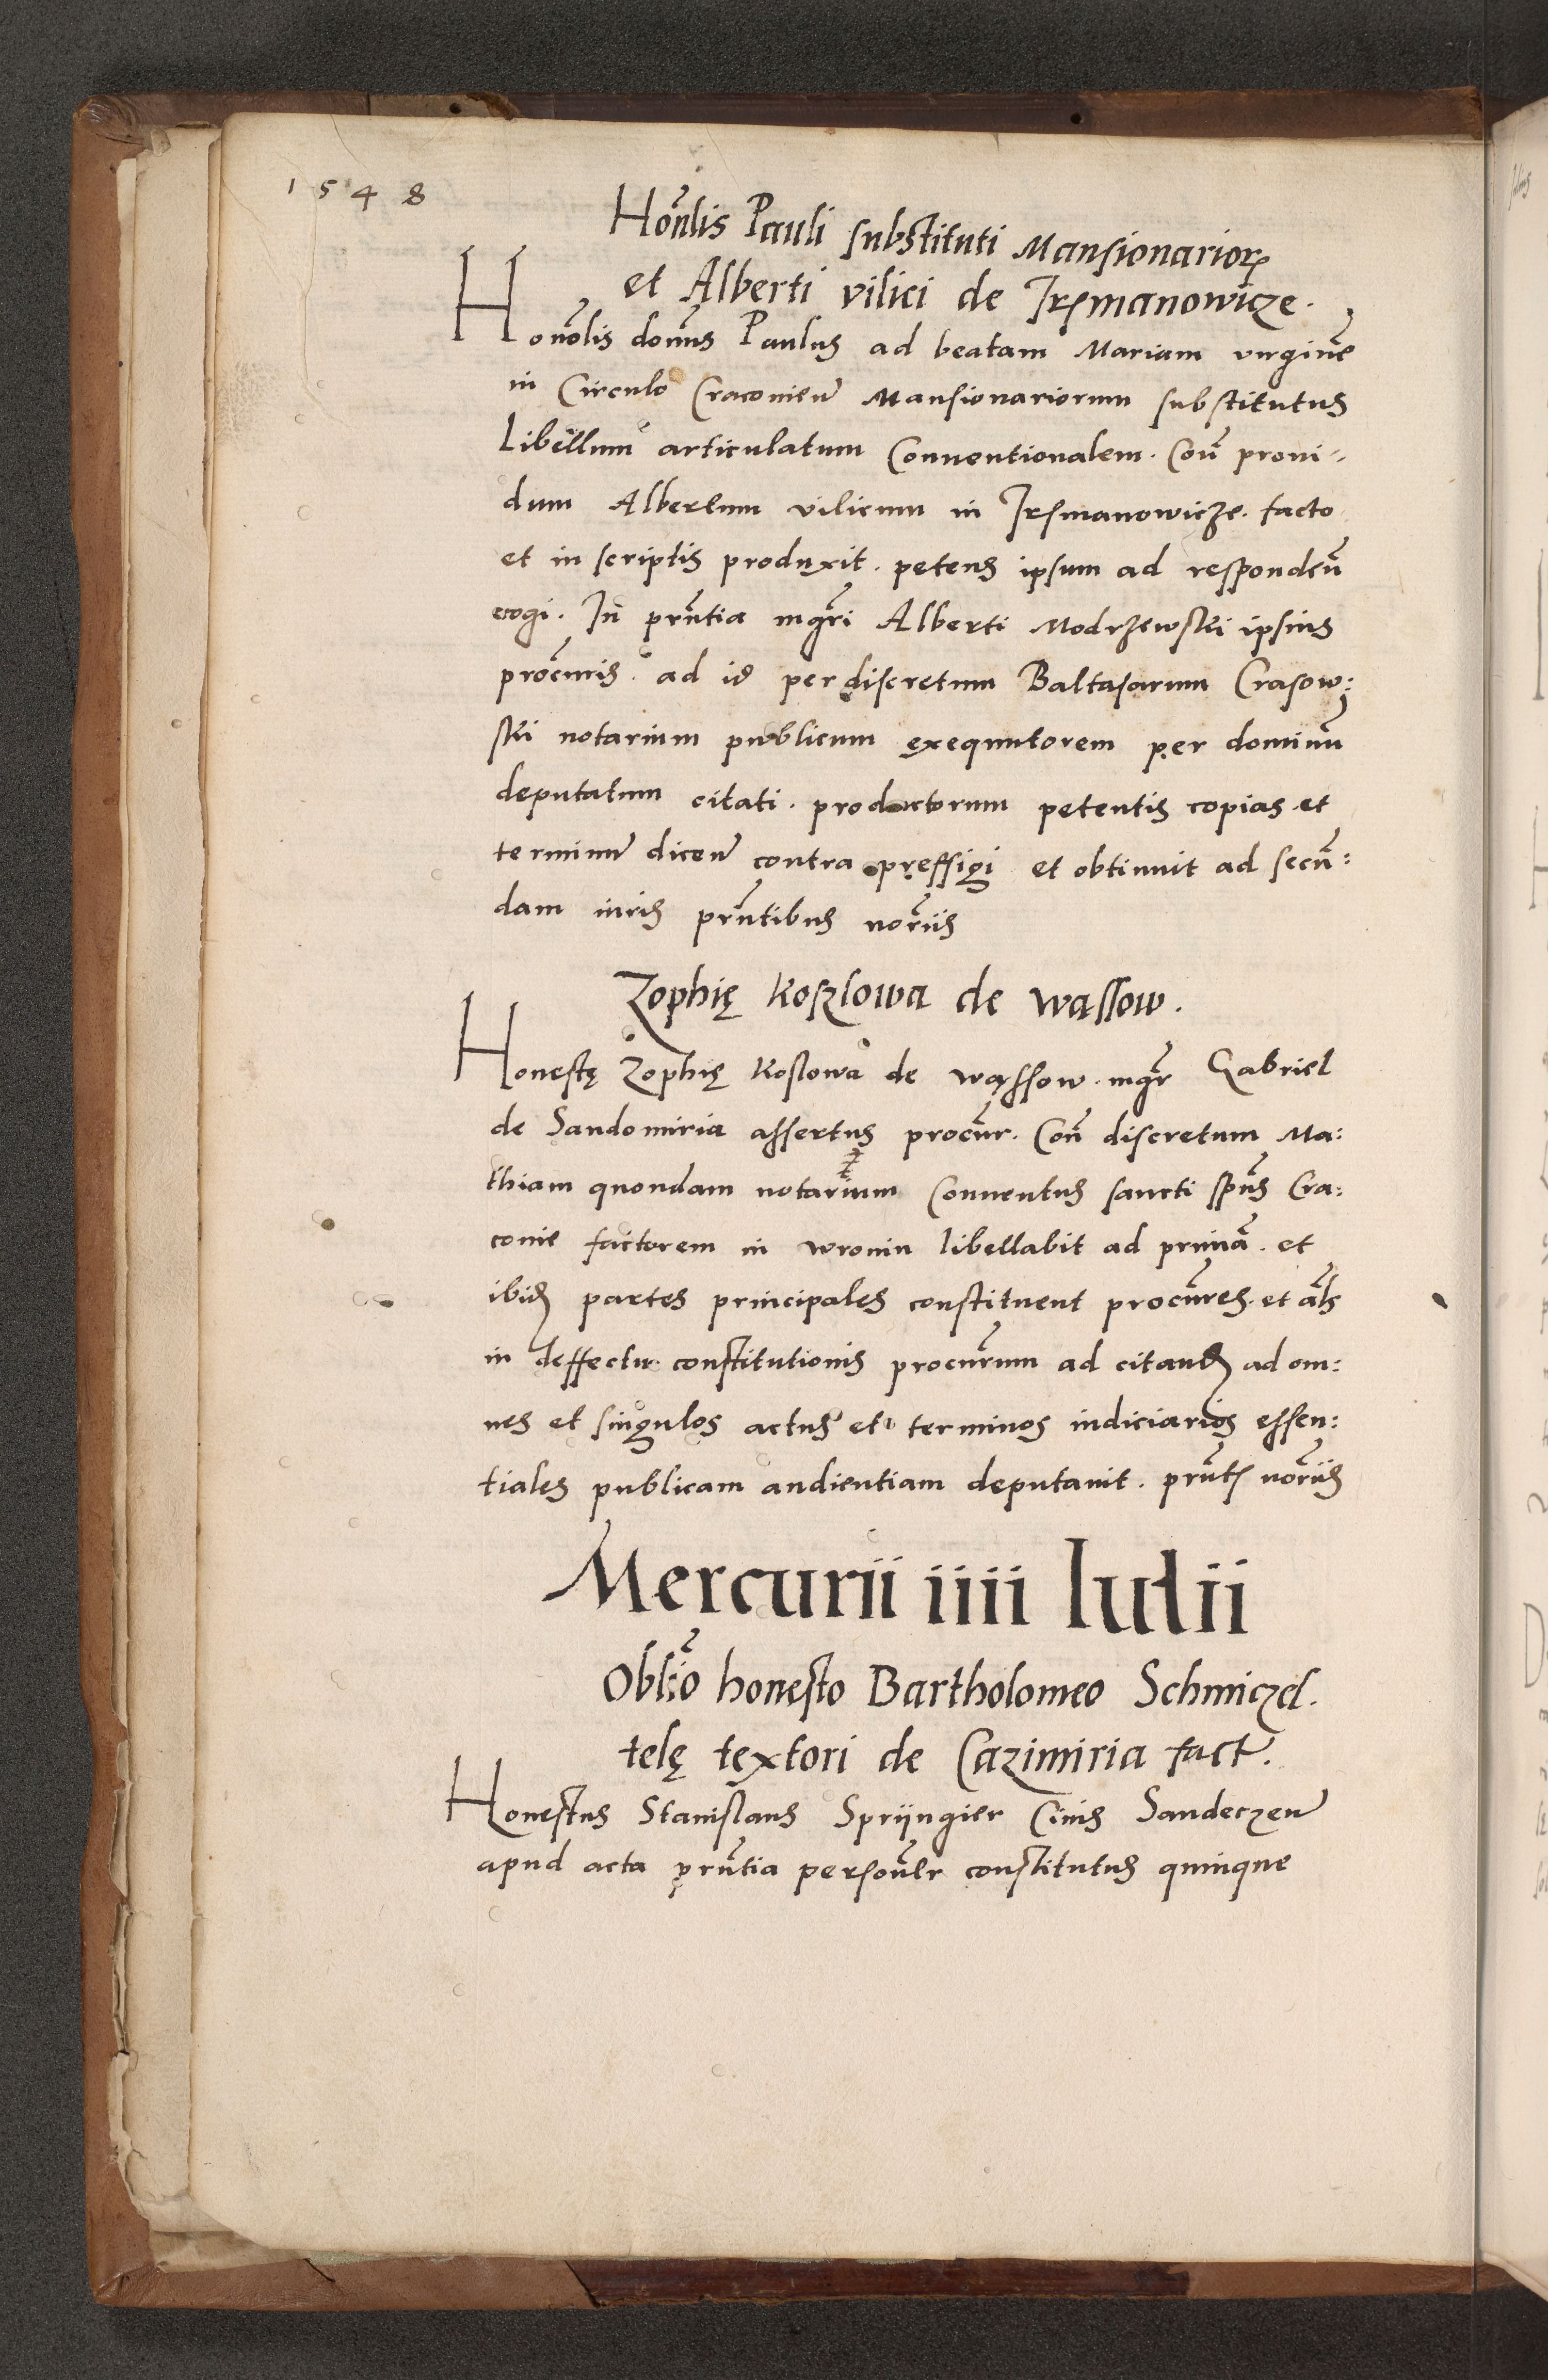 1548
Hon̄lis Pauli substituti Mansionarioꝝ
et Alberti vilici de Irsmanowicze.
Honōlis domn̄s Paulus ad beatam Mariam virginē
in Circulo Cracovien̄ Mansionariorum substitutus
Libellum articulatum Conventionalem. Con̄ provi-
dum Albertum vilicum in Irsmanowicze. facto
et in scriptis produxit. petens ipsum ad respondēn
cogi. In prn̄tia mgr̄i Alberti Modrzewski ipsius
procūris. ad id per discretum Baltasarum Crasow:
ski notarium publicum exequutorem per dominū
deputatum citati. productorum petentis copias et
terminū dicen̄ contra pręffigi et obtinuit ad secūn:
dam iuris prn̄tibus nor̄iis
Zophię Koszlowa de Wąssow.
Honestę Zophię Koslowa de Wąssow. mgr̄ Gabriel
de Sandomiria assertus procūr. Con̄ discretum Ma:
thiam quondam notarium Conventus sancti spūs Cra:
covie factorem in Wronin libellabit ad primā. et
ibidꝫ partes principales constituent procūres. et ālś
in deffectu constitutionis procūrum ad citandꝫ ad om:
nes et singulos actus et terminos iudiciarios essen:
tiales publicam audientiam deputavit. prn̄tꝫ nor̄iis
Mercurii iiii Iulii
Obliō honesto Bartholomeo Schmiczel.
telę textori de Cazimiria fact̄.
Honestus Stanislaus Sprijngier Civis Sandeczen̄
apud acta prn̄tia person̄lr constitutus quinque